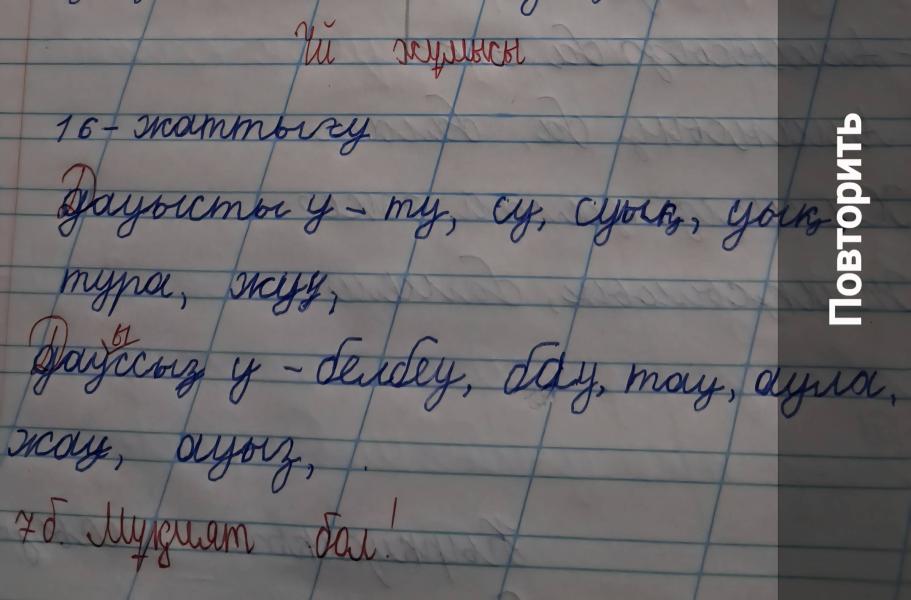 Үй жұмысы
16 - жаттығу
Дауысты у - ту, су, суық, уық
тура, жуу,
ы
Дауссыз у - белбеу, бау, тау, аула,
жау, ауыз,
7б. Мұқият бол!
Повторить